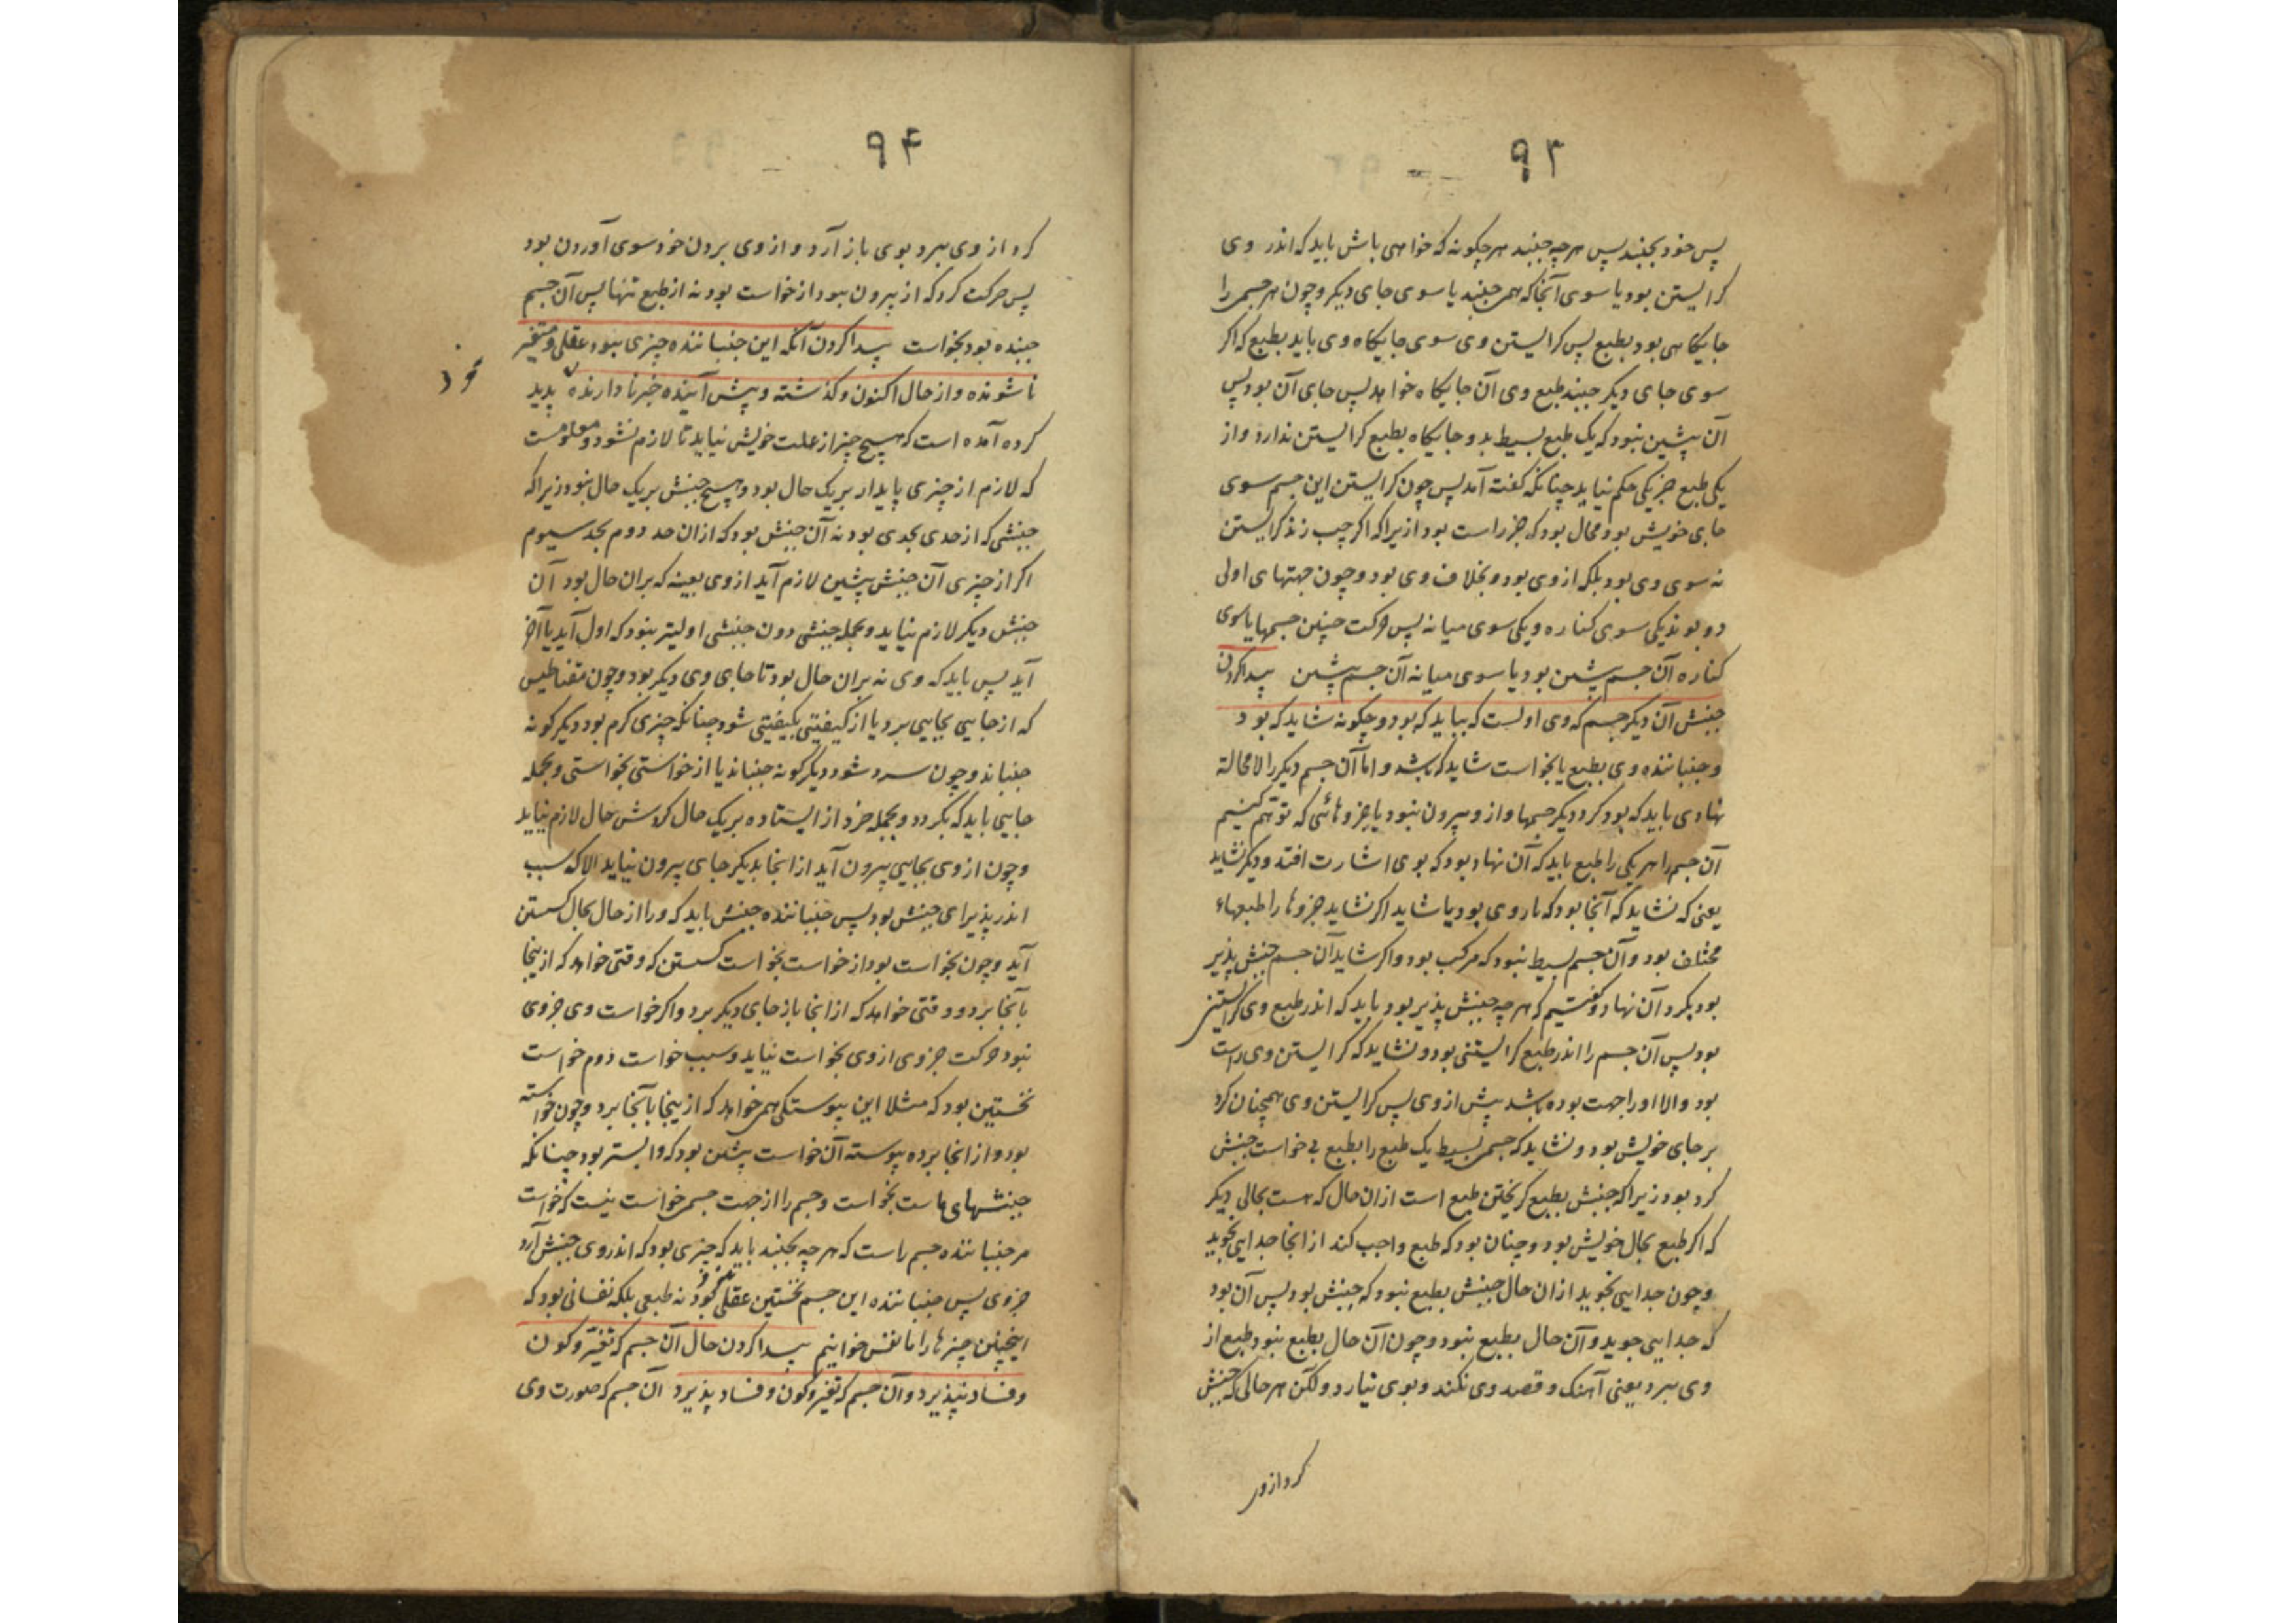 ۹۳
پس خود بجنبد پس هرچه جنبد هرچگونه که خواهی باش باید که اندر وی
گرایستن بود یا سوی آنجا که همی جنبد یا سوی جای دیگر و چون هر جسمی را
جایگاهی بود بطبع پس گرایستن وی سوی جایگاه وی باید بطبع که اگر
سوی جای دیگر جنبد طبع وی آن جایگاه خواهد پس جای آن بود پس
آن پیشین نبود که یک طبع بسیط بدو جایگاه بطبع گرایستن ندارد و از
یکی طبع جز یکی حکم نیاید چنانکه گفته آمد پس چون گرایستن این جسم سوی
جای خویش بود محال بود که جز راست بود ازیراکه اگر چپ زند گرایستن
نه سوی وی بود بلکه از وی بود و بخلاف وی بود و چون جهتهای اولی
دو بوند یکی سوی کناره و یکی سوی میانه پس حرکت چنین جسمها یا سوی
کناره آن جسم پیشین بود یا سوی میانه آن جسم پیشین پیدا کردن
جنبش آن دیگر جسم که وی اولست که بباید که بود و چگونه شاید که بود
و جنباننده وی بطبع یا بخواست شاید که باشد و اما آن جسم دیگر را لامحالة
نهادی باید که بود گرد دیگر جسمها و ازو بیرون نبود یا جزوهائی که توهم کنیم
آن جسم را هر یکی را طبع باید که آن نهاد بود که بوی اشارت افتد و دیگر نشاید
یعنی که نشاید که آنجا بود که باروی بود یا شاید اگر نشاید جزوها را طبعهاء
مختلف بود و آن جسم بسیط نبود که مرکب بود و اگر شاید آن جسم جنبش پذیر
بود بگرد آن نهاد و گفتیم که هرچه جنبش پذیر بود باید که اندر طبع وی گرایستنی
بود پس آن جسم را اندر طبع گرایستنی بود و نشاید که گرایستن وی راست
بود والا او را جهت بوده باشد پیش از وی پس گرایستن وی همچنان گرد
بر جای خویش بود و نشاید که جسمی بسیط یک طبع را بطبع بی خواست جنبش
گرد بود زیراکه جنبش بطبع گریختن طبع است ازان حال که هست بحالی دیگر
که اگر طبع بحال خویش بود و چنان بود که طبع واجب کند از انجا جدایی نجوید
و چون جدایی نجوید ازان حال جنبش بطبع نبود که جنبش بود پس آن بود
که جدایی جوید و آن حال بطبع نبود و چون آن حال بطبع نبود طبع از
وی ببرد یعنی آهنگ و قصد وی نکند و بوی نیارد ولکن هر حالی که جنبش
کرد از وی
۹۴
گرد از وی ببرد بوی باز آرد و از وی بردن خود سوی آوردن بود
پس حرکت گرد که از بیرون نبود از خواست بود نه از طبع تنها پس آن جسم
جنبنده بود بخواست پیدا کردن آنکه این جنباننده چیزی نبود عقلی و متغیر
ناشونده و از حال اکنون و گذشته و پیش آینده خبر نادارنده پدید
کرده آمده است که هیچ چیز از علت خویش نیاید تا لازم نشود و معلومست
که لازم از چیزی پایدار بر یک حال بود و هیچ جنبش بر یک حال نبود زیراکه
جنبشی که از حدی بحدی بود نه آن جنبش بود که ازان حد دوم بحد سیوم
اگر از چیزی آن جنبش پیشین لازم آید از وی بعینه که بران حال بود آن
جنبش دیگر لازم نیاید و بجمله جنبشی دون جنبشی اولیتر نبود که اول آید یا آخر
آید پس باید که وی نه بران حال بود تا جای وی دیگر بود و چون مقناطیس
که از جایی بجایی برد یا از کیفیتی بکیفیتی شود چنانکه چیزی گرم بود دیگر گونه
جنباند و چون سرد شود دیگر گونه جنباند یا از خواستی بخواستی و بجمله
جایی باید که بگردد و بجمله خرد از ایستاده بر یک حال گردش حال لازم نیاید
و چون از وی بجایی بیرون آید از انجا بدیگر جای بیرون نیاید الا که سبب
اندر پذیرای جنبش بود پس جنباننده جنبش باید که ورا از حال بحال گسستن
آید و چون بخواست بود از خواست بخواست گسستن که وقتی خواهد که از ینجا
بآنجا برد و وقتی خواهد که از انجا باز جای دیگر برد و اگر خواست وی جزوی
نبود حرکت جزوی از وی بخواست نیاید و سبب خواست دوم خواست
نخستین بود که مثلا این پیوستگی همی خواهد که از ینجا بآنجا برد و چون خواسته
بود و از انجا برده پیوسته آن خواست پیشین بود که وابستر بود چنانکه
جنبشهای ماست بخواست و جسم را از جهت جسمی خواست نیست که خواست
مر جنباننده جسم راست که هرچه بجنبد باید که چیزی بود که اندر وی جنبش آرد
جزوی پس جنباننده این جسم نخستین عقلی نبود نه طبعی بلکه نفسانی بود که
اینچنین چیزها را ما نفس خوانیم پیدا کردن حال آن جسم که تغیر و کون
و فساد نپذیرد و آن جسم که تغیر و کون و فساد پذیرد آن جسم که صورت وی